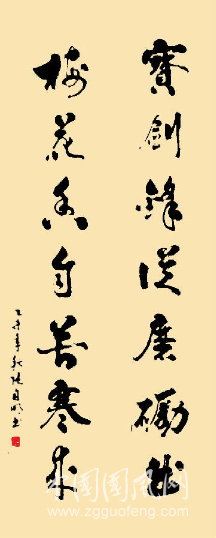 寶劍鋒從磨礪出
梅花香自苦寒來
中国国风网
www.zgguofeng.com